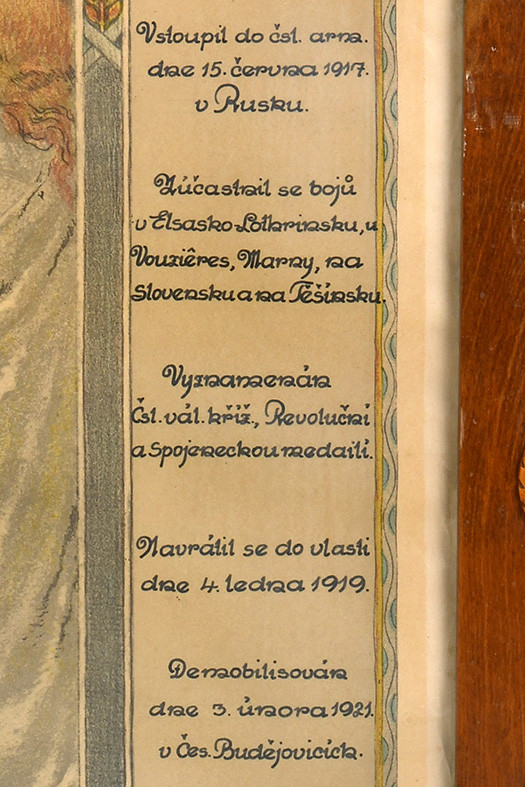 Vstoupil do čsl. arm.
dne 15. června 1917.
v Rusku.
Zúčastnil se bojů
v Elsasko-Lothrinsku, u
Vouzières, Marny, na
Slovensku a na Těšínsku.
Vyznamenán
Čsl. vál. kříž., Revoluční
a Spojeneckou medailí.
Navrátil se do vlasti
dne 4. ledna 1919.
Demobilisován
dne 3. února 1921.
v Čes. Budějovicích.